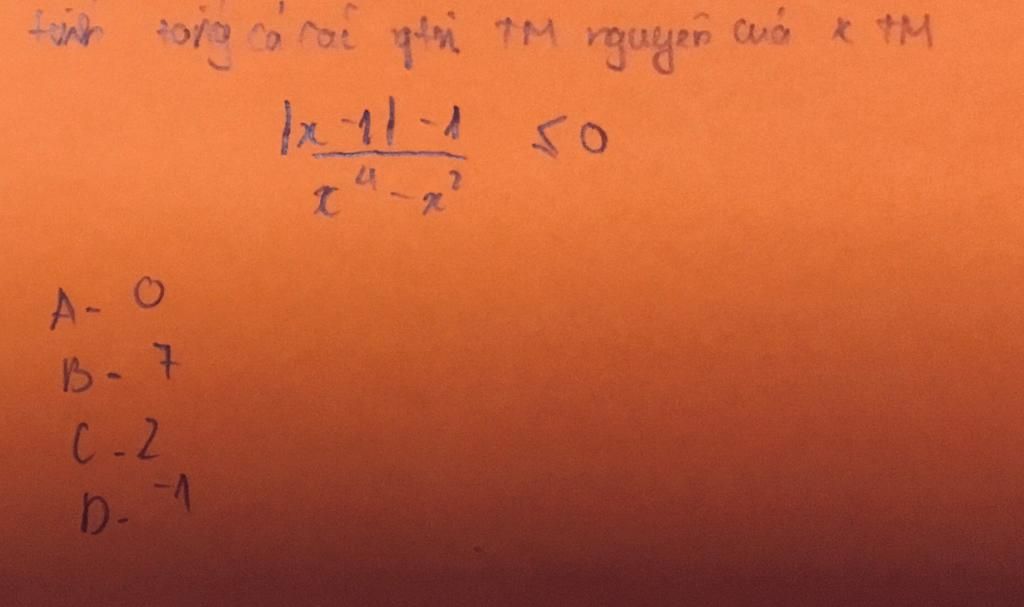 tính tổng cả các gtri TM nguyên cuả x TM
|x - 1| - 1 ≤ 0
x⁴ - x²
A - 0
B - 7
C - 2
D - -1